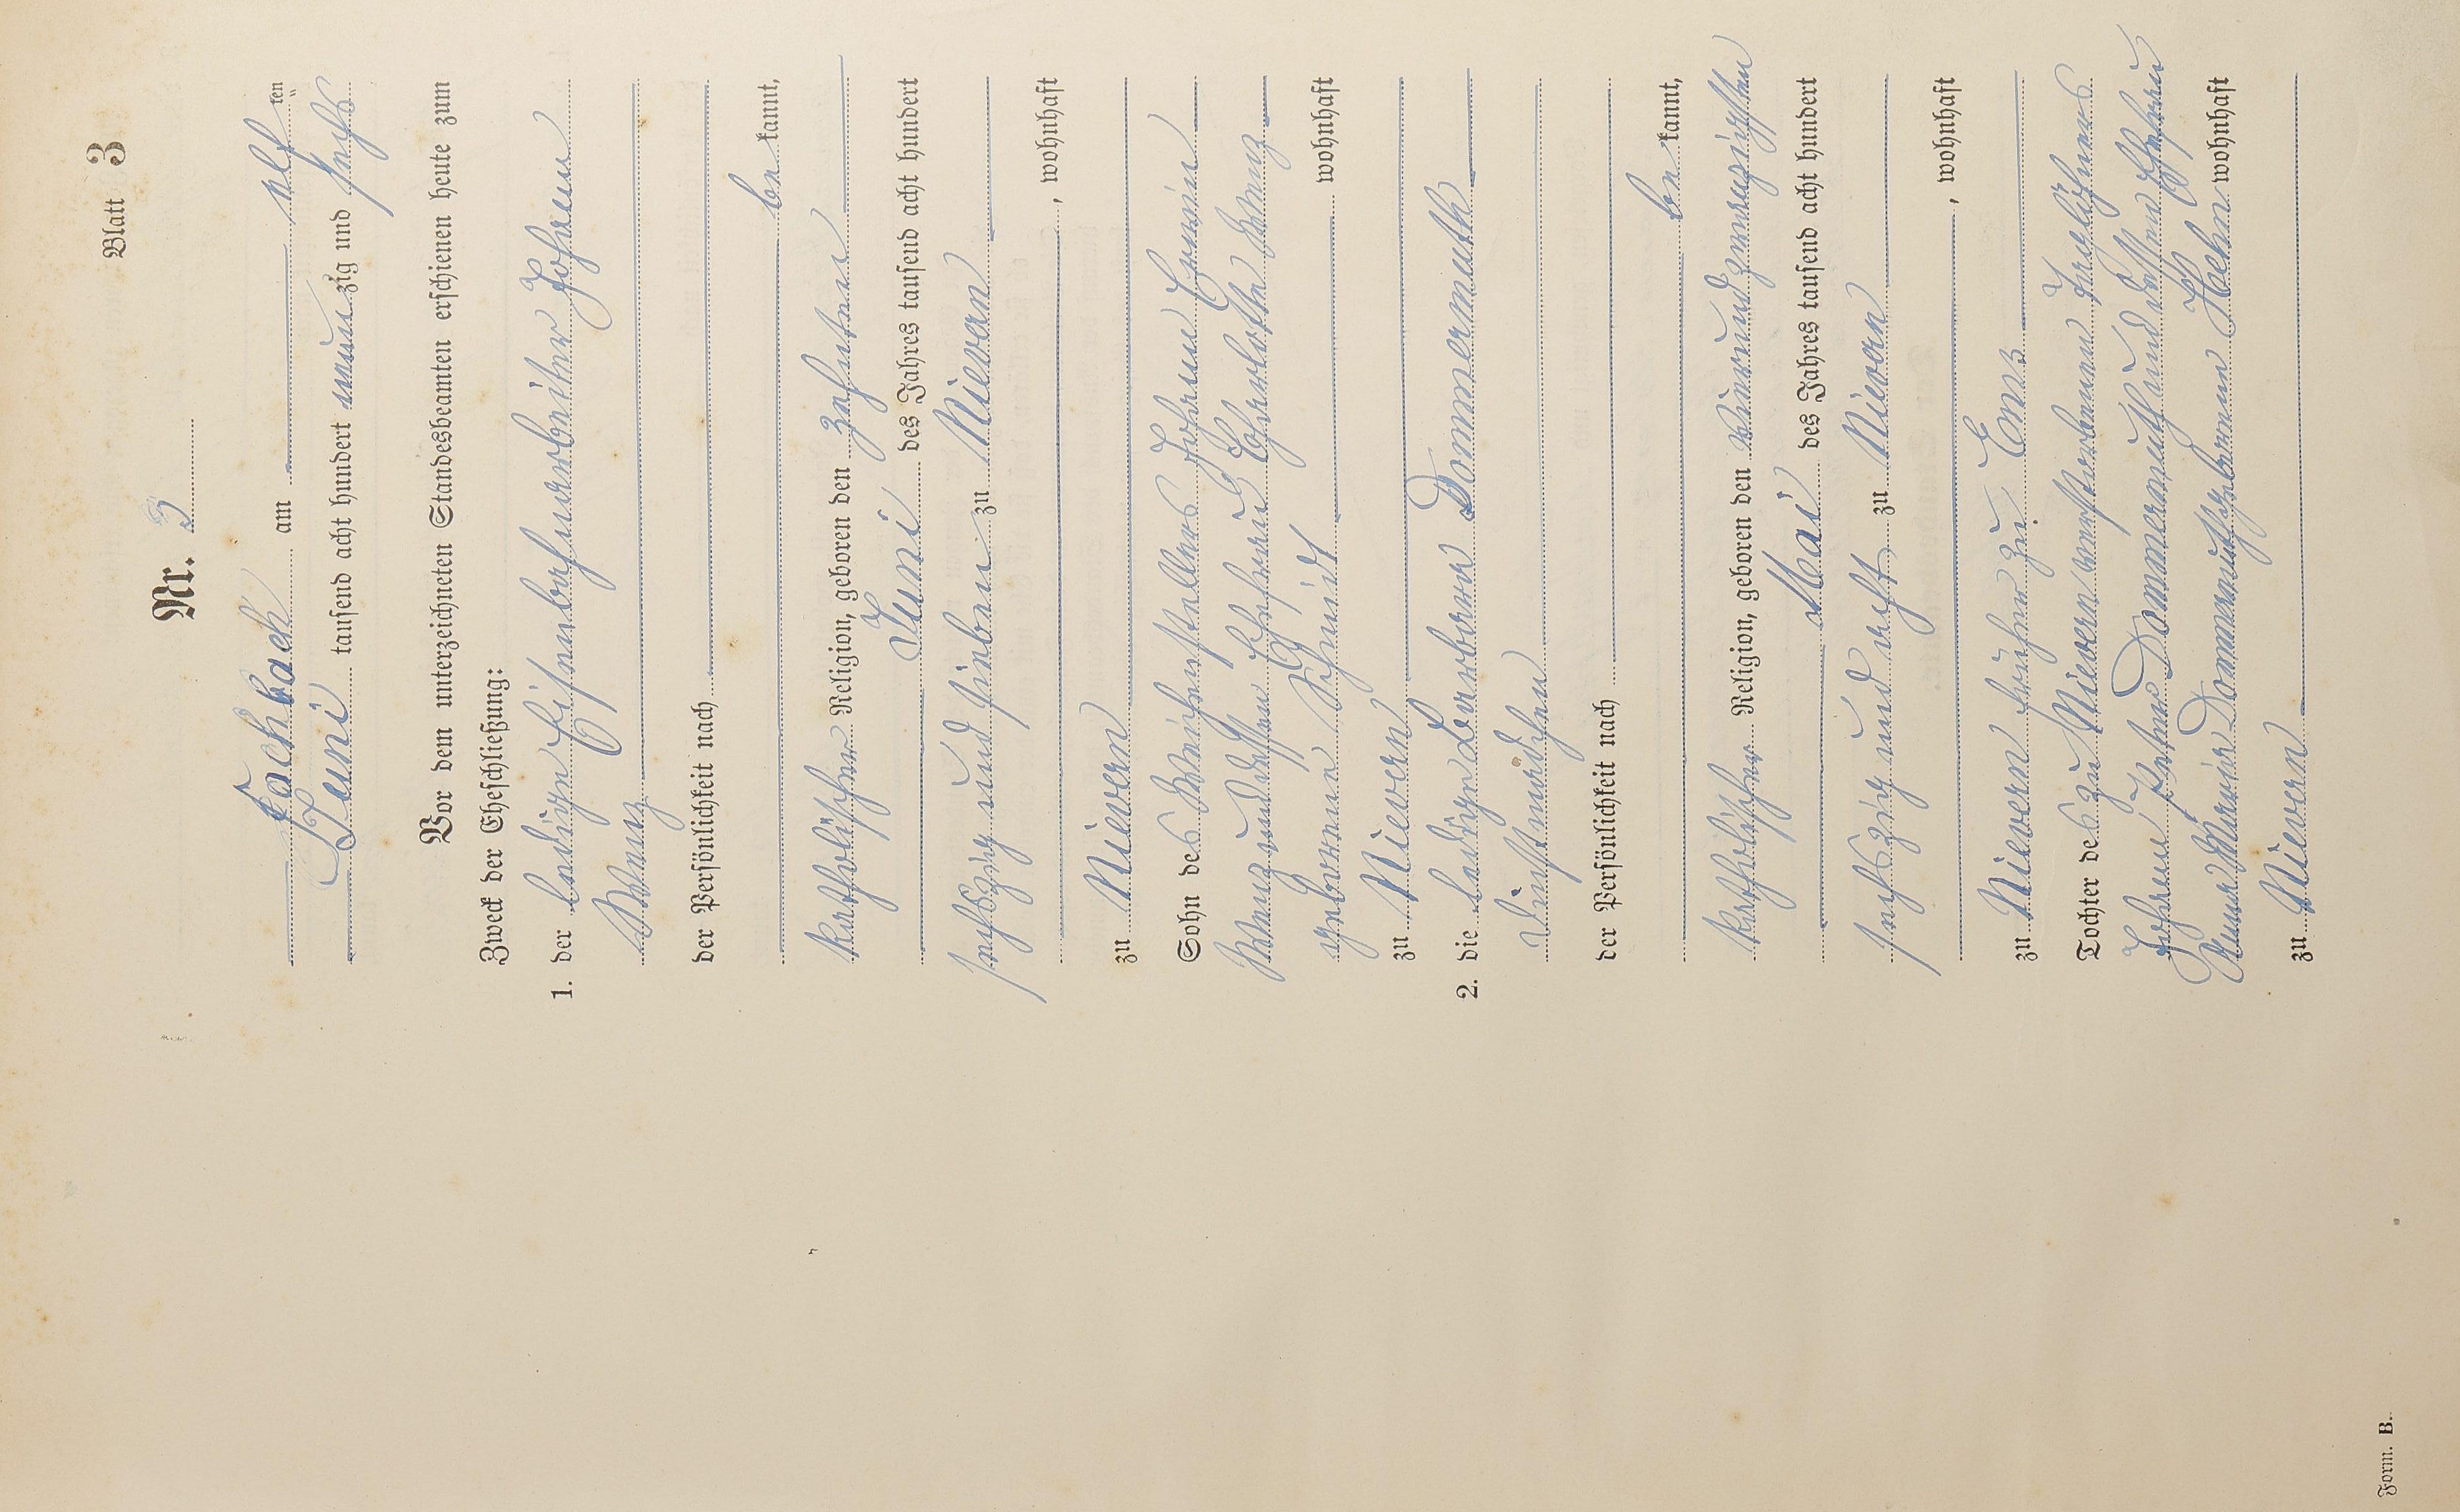 Blatt 3
Nr. 3
Fachbach am elf ten
Juni tausend acht hundert neunzig und sechs
Vor dem unterzeichneten Standesbeamten erschienen heute zum
Zweck der Eheschließung:
1. der ledige Eisenbahnarbeiter Johann
Wenz
der Persönlichkeit nach
be kannt,
katholischer Religion, geboren den zehnten
Juni des Jahres tausend acht hundert
sechszig und sieben zu Nievern
, wohnhaft
zu Nievern
Sohn des Weichenstellers Johann Erwin
Wenz und dessen Ehefrau Charlotte Wenz
geborenen Schmidt wohnhaft
zu Nievern
2. die ledige Barbara Dommermuth
Dienstmädchen
der Persönlichkeit nach
be kannt,
katholischer Religion, geboren den vierundzwanzigsten
Mai des Jahres tausend acht hundert
sechszig und acht zu Nievern
, wohnhaft
zu Nievern früher zu Ems
Tochter des zu Nievern verstorbenen Tagelöhners
Johann Dommermuth und dessen Ehefrau
Anna Maria Dommermuth geborenen Hehn wohnhaft
zu Nievern
Form. B.